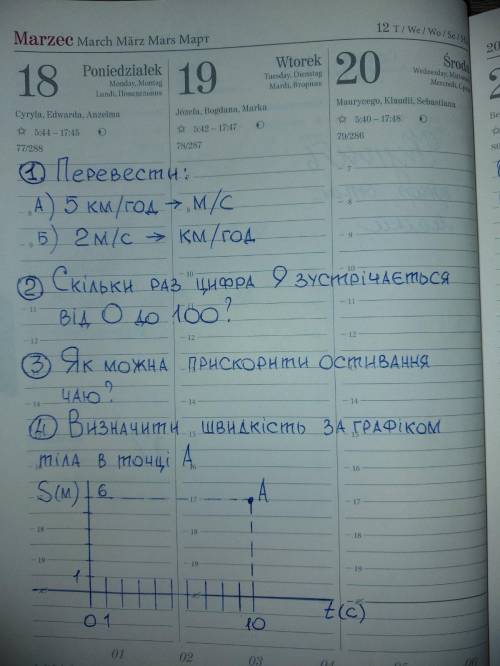 Marzec March März Mars Март
12 T / We / Wo / Se /
18 Poniedziałek
Monday, Montag
Lundi, Понедельник
Cyryla, Edwarda, Anzelma
5:44 – 17:45
77/288
19 Wtorek
Tuesday, Dienstag
Mardi, Вторник
Józefa, Bogdana, Marka
5:42 – 17:47
78/287
20
Maurycego, Klaudii, Sebastiana
5:40 – 17:48
79/286
1 Перевести:
А) 5 км/год → м/с
Б) 2м/с → км/год
2 Скільки раз цифра 9 зустрічається
від 0 до 100?
3 Як можна прискорити остивання
чаю?
4 Визначити швидкість за графіком
тіла в точці А
S(м) 6 A
1
0 1 10 t(с)
01 02 03 04 05